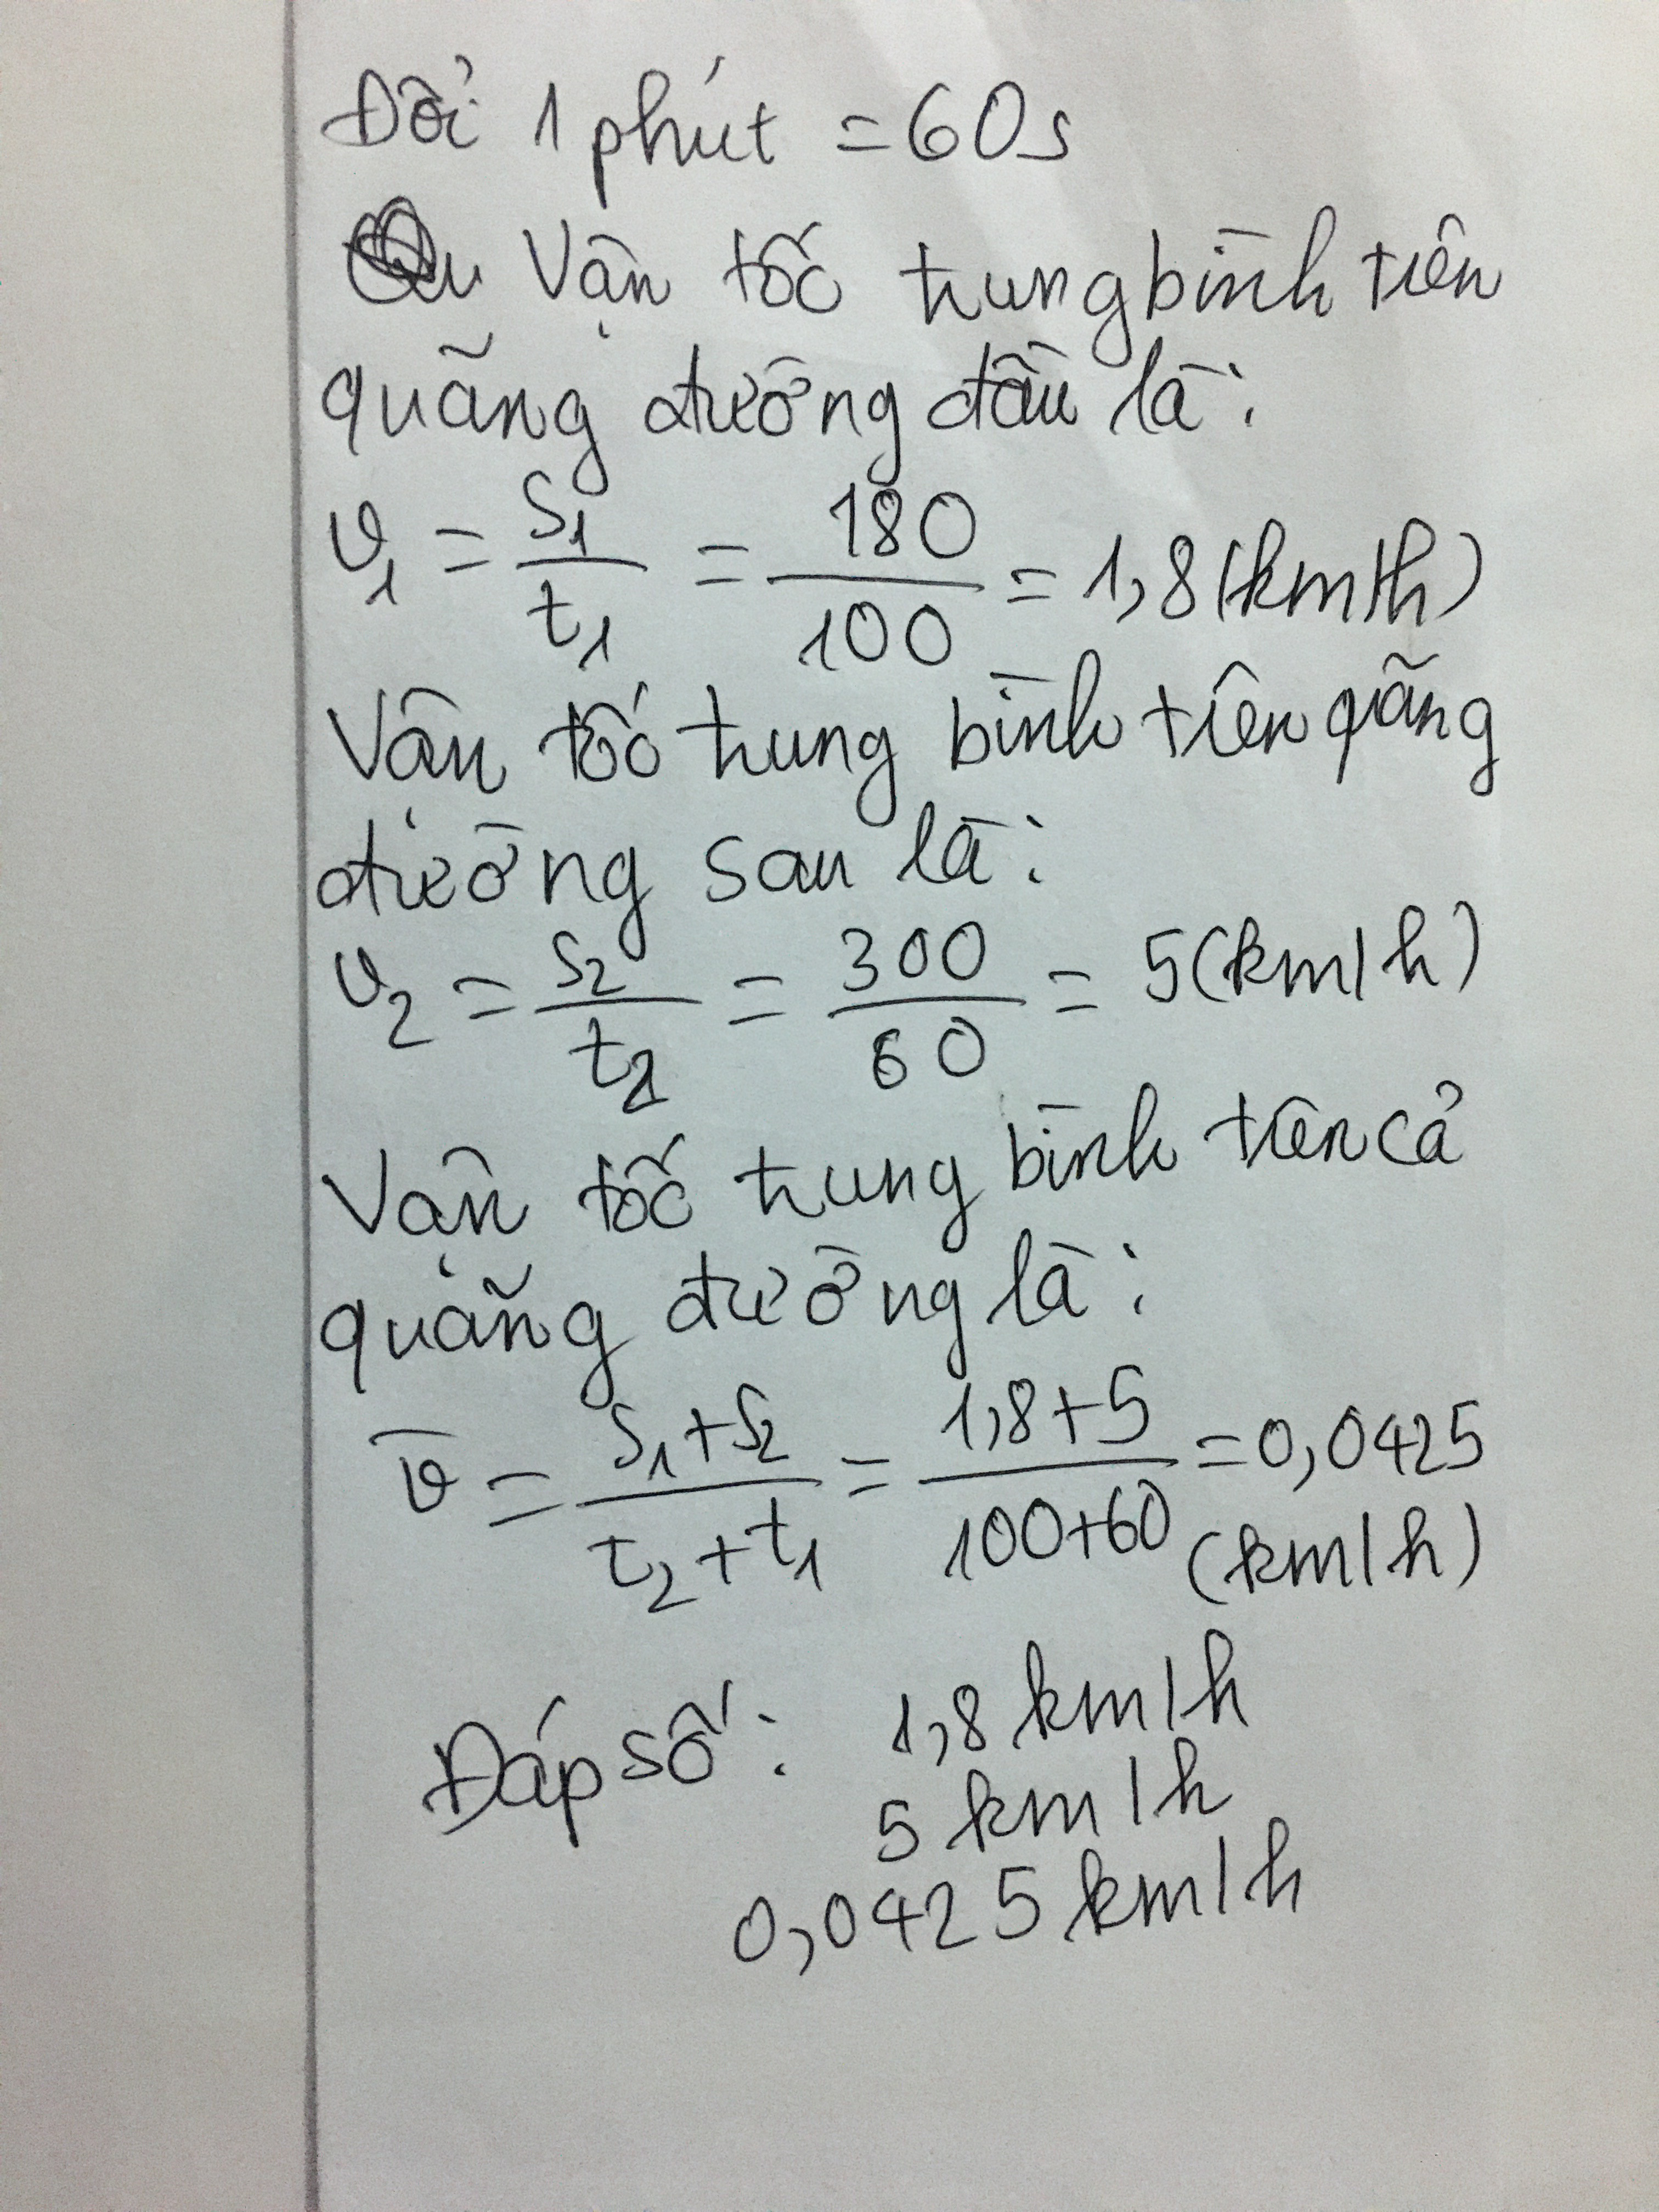 Đổi 1 phút = 60s
Vận tốc trung bình trên
quãng đường đầu là:
v₁ = s₁/t₁ = 180/100 = 1,8 (km/h)
Vận tốc trung bình trên qãng
đường sau là:
v₂ = s₂/t₂ = 300/60 = 5 (km/h)
Vận tốc trung bình trên cả
quãng đường là:
v̄ = (s₁+s₂)/(t₂+t₁) = (1,8+5)/(100+60) = 0,0425
(km/h)
Đáp số: 1,8 km/h
5 km/h
0,0425 km/h